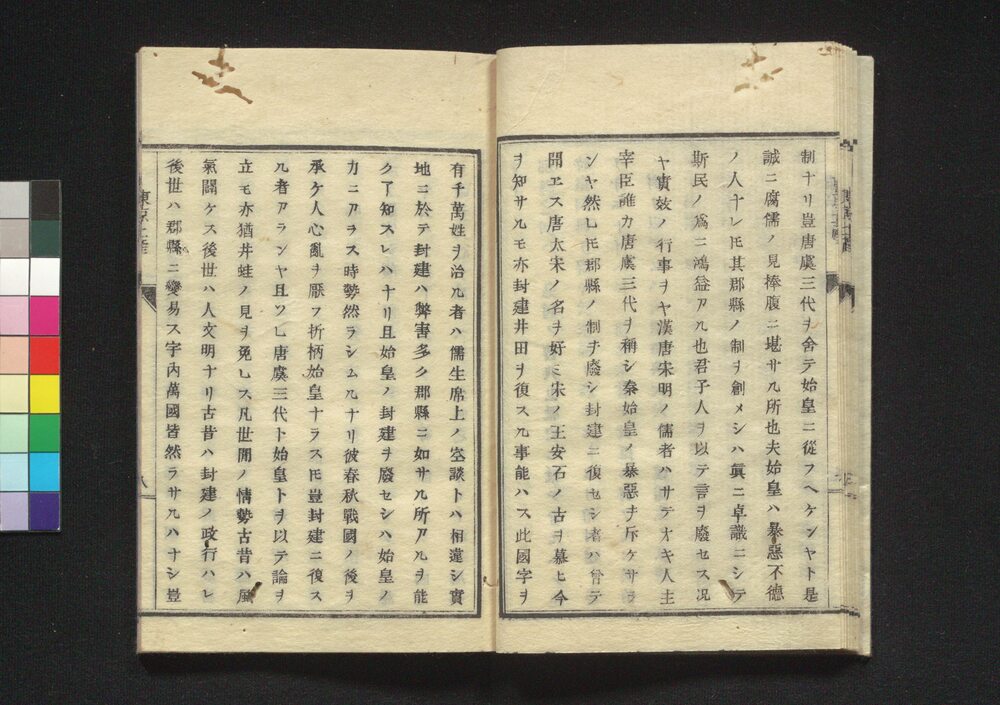 制ナリ豈唐虞三代ヲ舍テ始皇ニ從フヘケンヤト是
誠ニ腐儒ノ見捧腹ニ堪サル所也夫始皇ハ暴惡不德
ノ人ナレ𪜈其郡縣ノ制ヲ創メシハ眞ニ卓識ニシテ
斯民ノ爲ニ鴻益アル也君子人ヲ以テ言ヲ廢セス况
ヤ實效ノ行事ヲヤ漢唐宋明ノ儒者ハサテオキ人主
宰臣誰カ唐虞三代ヲ稱シ秦始皇ノ暴惡ヲ斥ケサラ
ンヤ然𪜈郡縣ノ制ヲ廢シ封建ニ復セシ者ハ曾テ
聞エス唐太宋ノ名ヲ好ミ宋ノ王安石ノ古ヲ慕ヒ今
ヲ知サルモ亦封建井田ヲ復スル事能ハス此國字ヲ
有千萬姓ヲ治ル者ハ儒生席上ノ空談トハ相違シ實
地ニ於テ封建ハ弊害多ク郡縣ニ如サル所アルヲ能
ク了知スレハナリ且始皇ノ封建ヲ廢セシハ始皇ノ
力ニアラス時勢然ラシムルナリ彼春秋戰國ノ後ヲ
承ケ人心亂ヲ厭フ折柄始皇ナラス𪜈豈封建ニ復ス
ル者アランヤ且ツレ唐虞三代ト始皇トヲ以テ論ヲ
立モ亦猶井蛙ノ見ヲ免レス凡世開ノ情勢古昔ハ風
氣鬪ケス後世ハ人文明ナリ古昔ハ封建ノ政行ハレ
後世ハ郡縣ニ變易ス宇内萬國皆然ラサルハナシ豈
東京土産
八